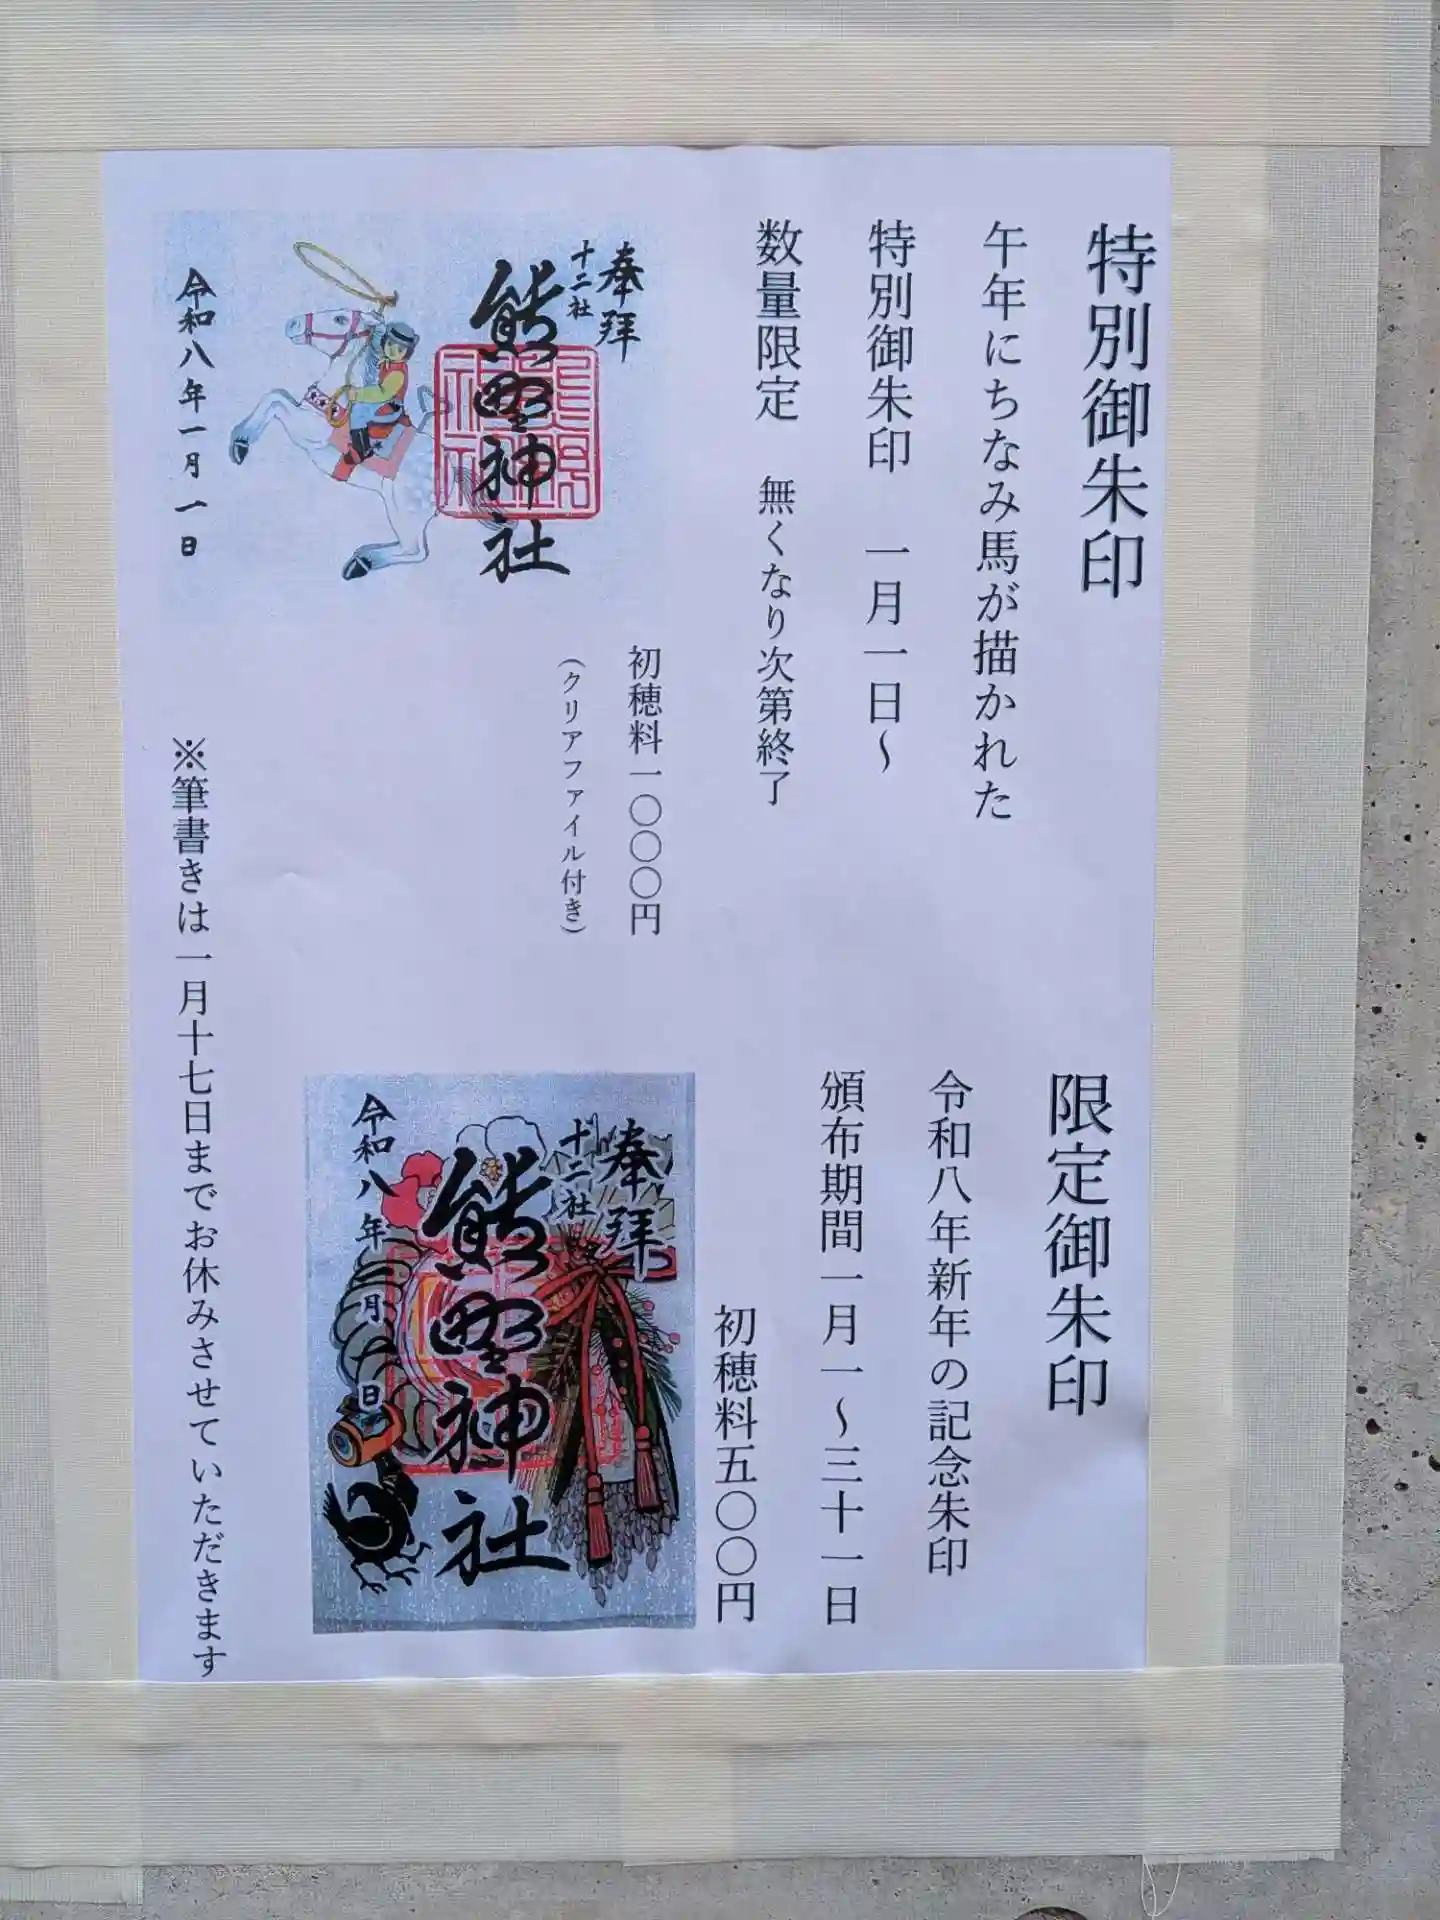 特別御朱印
午年にちなみ馬が描かれた
特別御朱印　一月一日〜
数量限定　無くなり次第終了
初穂料一〇〇〇円
（クリアファイル付き）
奉拝
十二社
熊野神社
令和八年一月一日
限定御朱印
令和八年新年の記念朱印
頒布期間一月一〜三十一日
初穂料五〇〇円
奉拝
十二社
熊野神社
令和八年一月　日
※筆書きは一月十七日までお休みさせていただきます